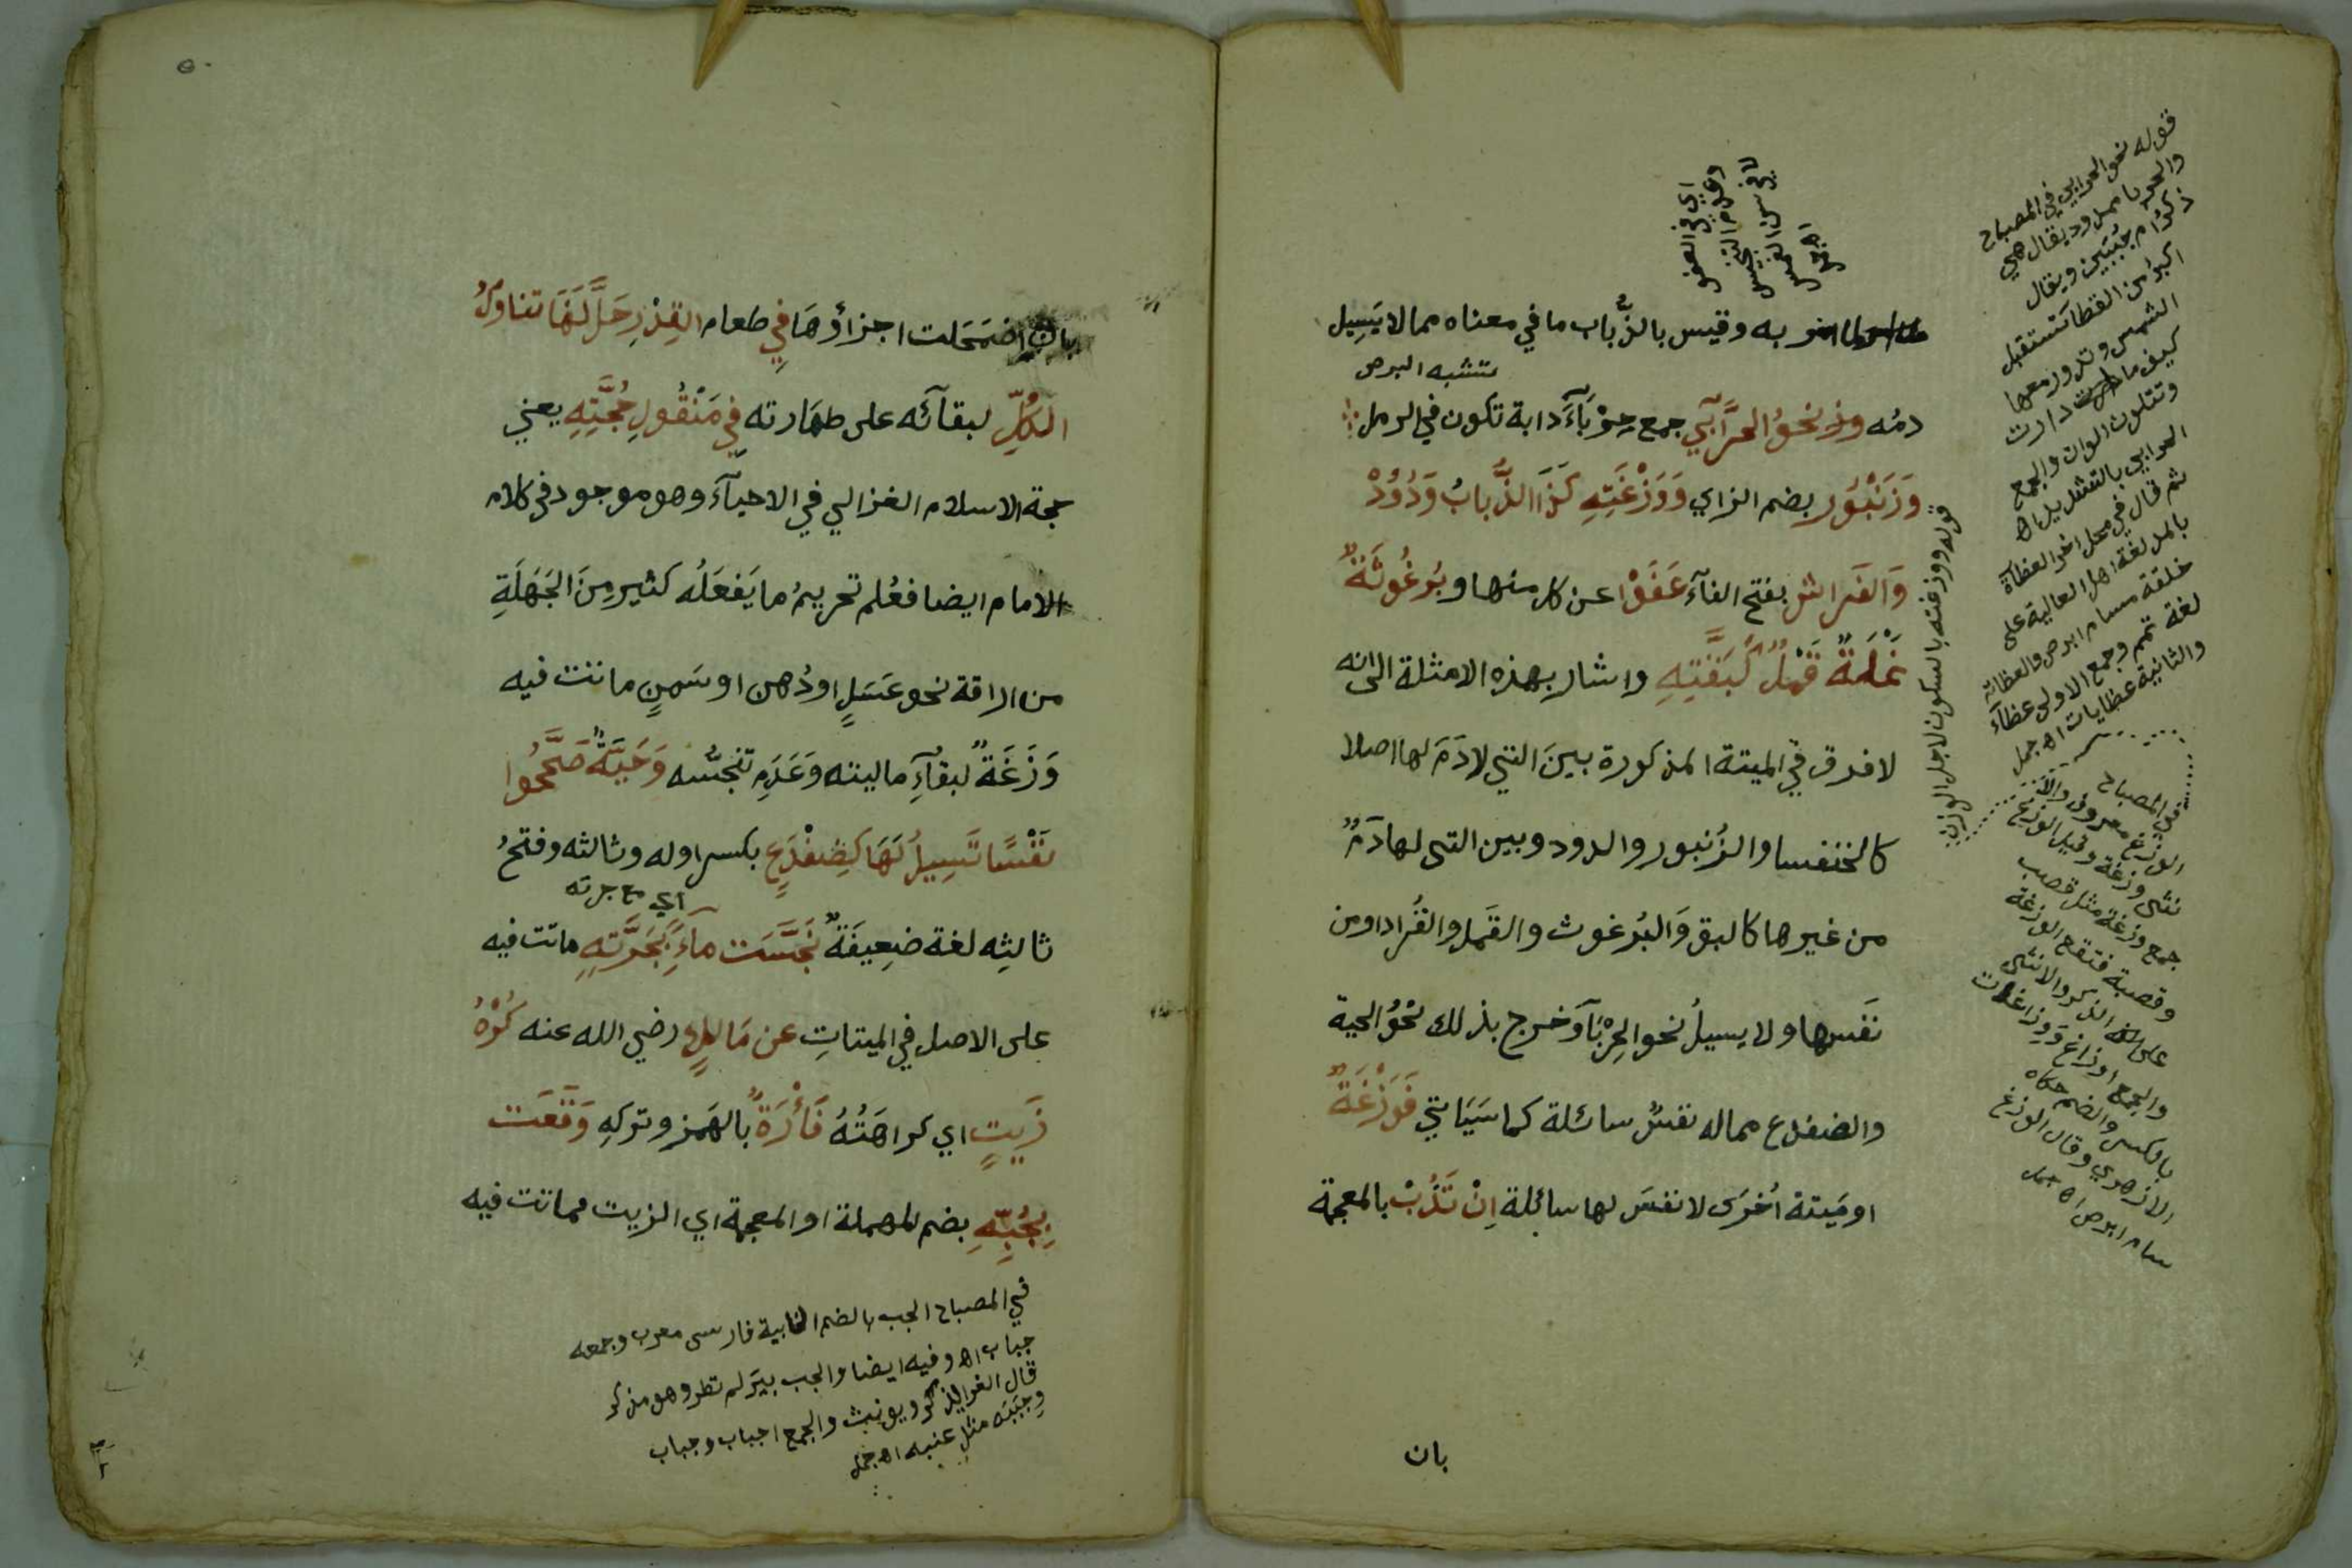 اي في العفو
وعدم التنجيس
لا في سن الغمس
اه جمل
به وقيس بالذُّباب ما في معناه مما لا يَسِيل
تشبه البرص
دمُه ونحوُ الحَرَّابَي جمع حِرْبَآءَ دابة تكون في الرمل
وَزَنْبُوُر بضم الزاي وَوَزْغَتِهِ كَذَا الذُّبابُ وَدُوْدْ
وَالفَراش بفتح الفآءَ عَفَوْا عن كل منها وبُرغُوثَةٌ
نَمْلَةٌ قَمْلٌ كَبَقَّتِهِ واشار بهذه الامثلة الى انه
لا فرق في الميتة المذكورة بينَ التي لا دَمَ لها اصلا
كالخنفسا والزُنبور والدود وبين التى لها دَمٌ
من غيرها كالبق وَالبُرغوث والقَمل والقُراد او من
نَفَسها ولا يسيلُ نحو الحِرْبَآ وَخرج بذلك نحْوُ الحية
والضفدع مما له نفسٌ سائلة كما سَيَاتي فَوَزْغَةٌ
او مَيتة اُخرَى لا نفسَ لها سائلة اِنْ تَذُبْ بالمعجمة
بان
قوله نحو الحرابي في المصباح
والحربا ممدود يقال هي
ذكر ام حُبَيين ويقال
اكبر من القطا تستقبل
الشمس وتدور معها
كيف ما دارت
وتتلون الوان والجمع
الحرابي بالتشديد اه
ثم قال في محل اخر العظآة
بالمد لغة اهل العالية على
خلقة سام ابرص والعظاية
لغة تميم وجمع الاولى عظآء
والثانية عظايات اه جمل
قوله ووزغته بالسكون لاجل الوزن
في المصباح
الوزغ معروف والانـ
ـثى وزغة وقيل الوزغ
جمع وزغة مثل قصب
وقصبة فتقع الوزغة
على الذكر والانثى
والجمع اوزاغ ووزاغان
بالكسر والضم حكاه
الازهري وقال الوزغ
سام ابرص اه جمل
بان اضمَحَلت اجزاؤهَا فِي طعام القِدْرِ حَلَّ لَهَا تناوُلُ
الكُلِّ لبقآئه على طهَارته فِي مَنْقُولِ حُجَّتِهِ يعني
حجة الاسلام الغزالي في الاحيآءَ وهو موجود في كلام
الامام ايضا فعُلم تحريمُ ما يَفعَلُه كثير مِنَ الجَهَلَةِ
من اراقة نحو عَسَلٍ او دُهن او سَمنٍ ماتت فيه
وَزَغَةٌ لبقآءِ ماليته وَعَدَمِ تنجسُّه وَحَيَّةٌ صَحَّحُوا
نَفْسًا تَسِيلُ لَهَا كَضِفْدِعٍ بكسر اوله وثالثه وفتحُ
اي مع جرته
ثالثِه لغة ضعِيفَةٌ نَجَّسَت مآءً كَجَرَّتِهِ ماتت فيه
على الاصل في الميتاتِ عن مَالِكٍ رضي الله عنه كُرْهُ
زَيتٍ اي كراهَتُهُ فَأْرَةٌ بالهَمز وتركِهِ وَقَعَت
بِجُبِّهِ بضم المهملة او المعجمة اي الزيت فماتت فيه
في المصباح الجب بالضم الخابية فارسى معرب وجمعه
جباب اه وفيه ايضا والجب بير لم تطو وهو مذكر
قال الفرا يذكر ويونث والجمع اجباب وجباب
وجببة مثل عنبه اه جمل